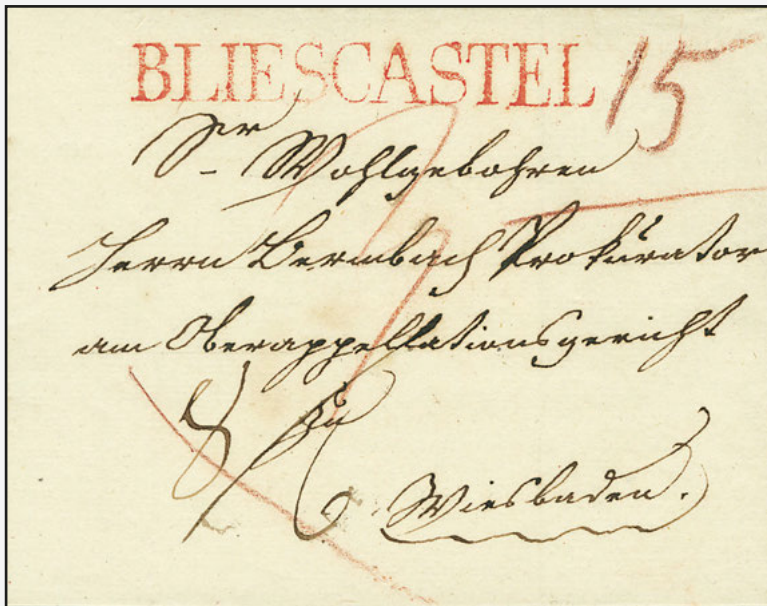 BLIESCASTEL 15
Sr Wohlgebohren
Herrn Bermbach Prokurator
am Oberappellationsgericht
zu
Wiesbaden.